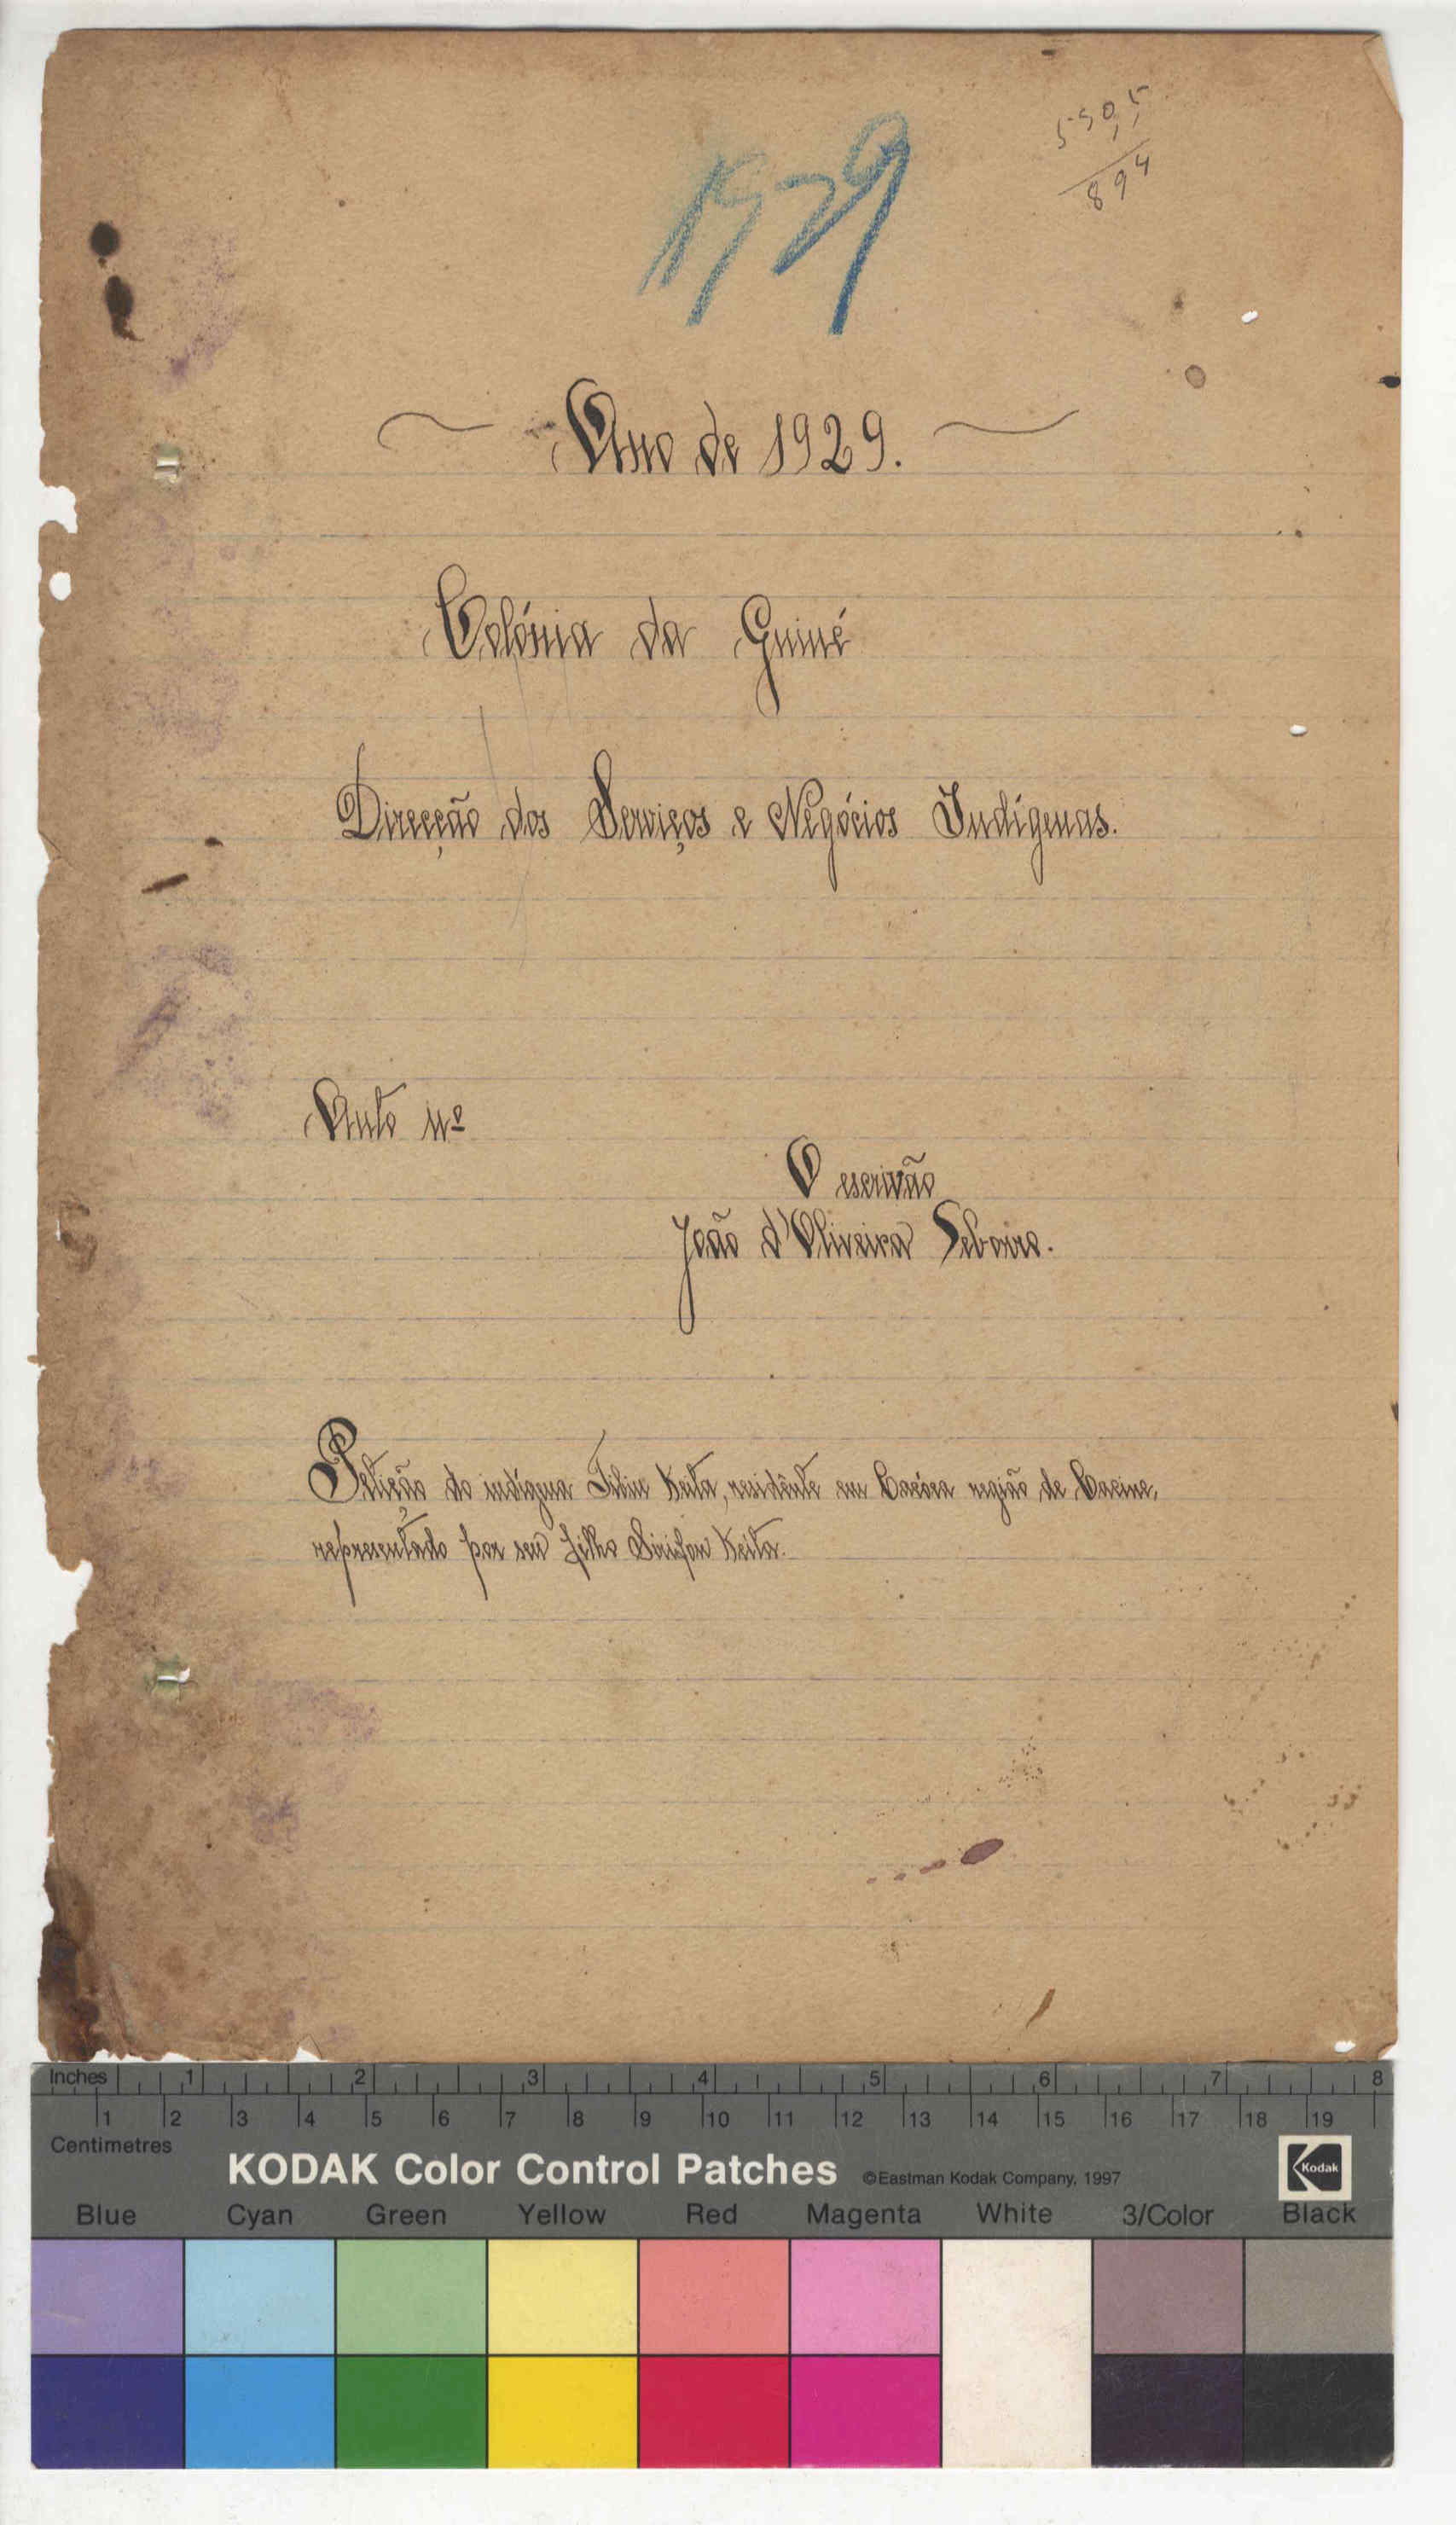 1929
894
Ano de 1929.
Colónia da Guiné
Direcção dos Serviços e Negócios Indígenas.
Auto nº
O escrivão
João d'Oliveira
Petição do indígena Keita, residênte em Cacine,
representado por seu filho Keita.
Inches 1 2 3 4 5 6 7 8
1 2 3 4 5 6 7 8 9 10 11 12 13 14 15 16 17 18 19
Centimetres
KODAK Color Control Patches ©Eastman Kodak Company, 1997 Kodak
Blue Cyan Green Yellow Red Magenta White 3/Color Black